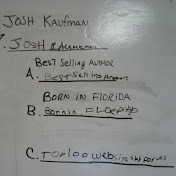 JOSH KAUFMAN
. JOSH
BEST SELLING AUTHOR
A. BEST Selling
BORN IN FLORIDA
B. Born in FLORIDA
C. TOP 100 WEB